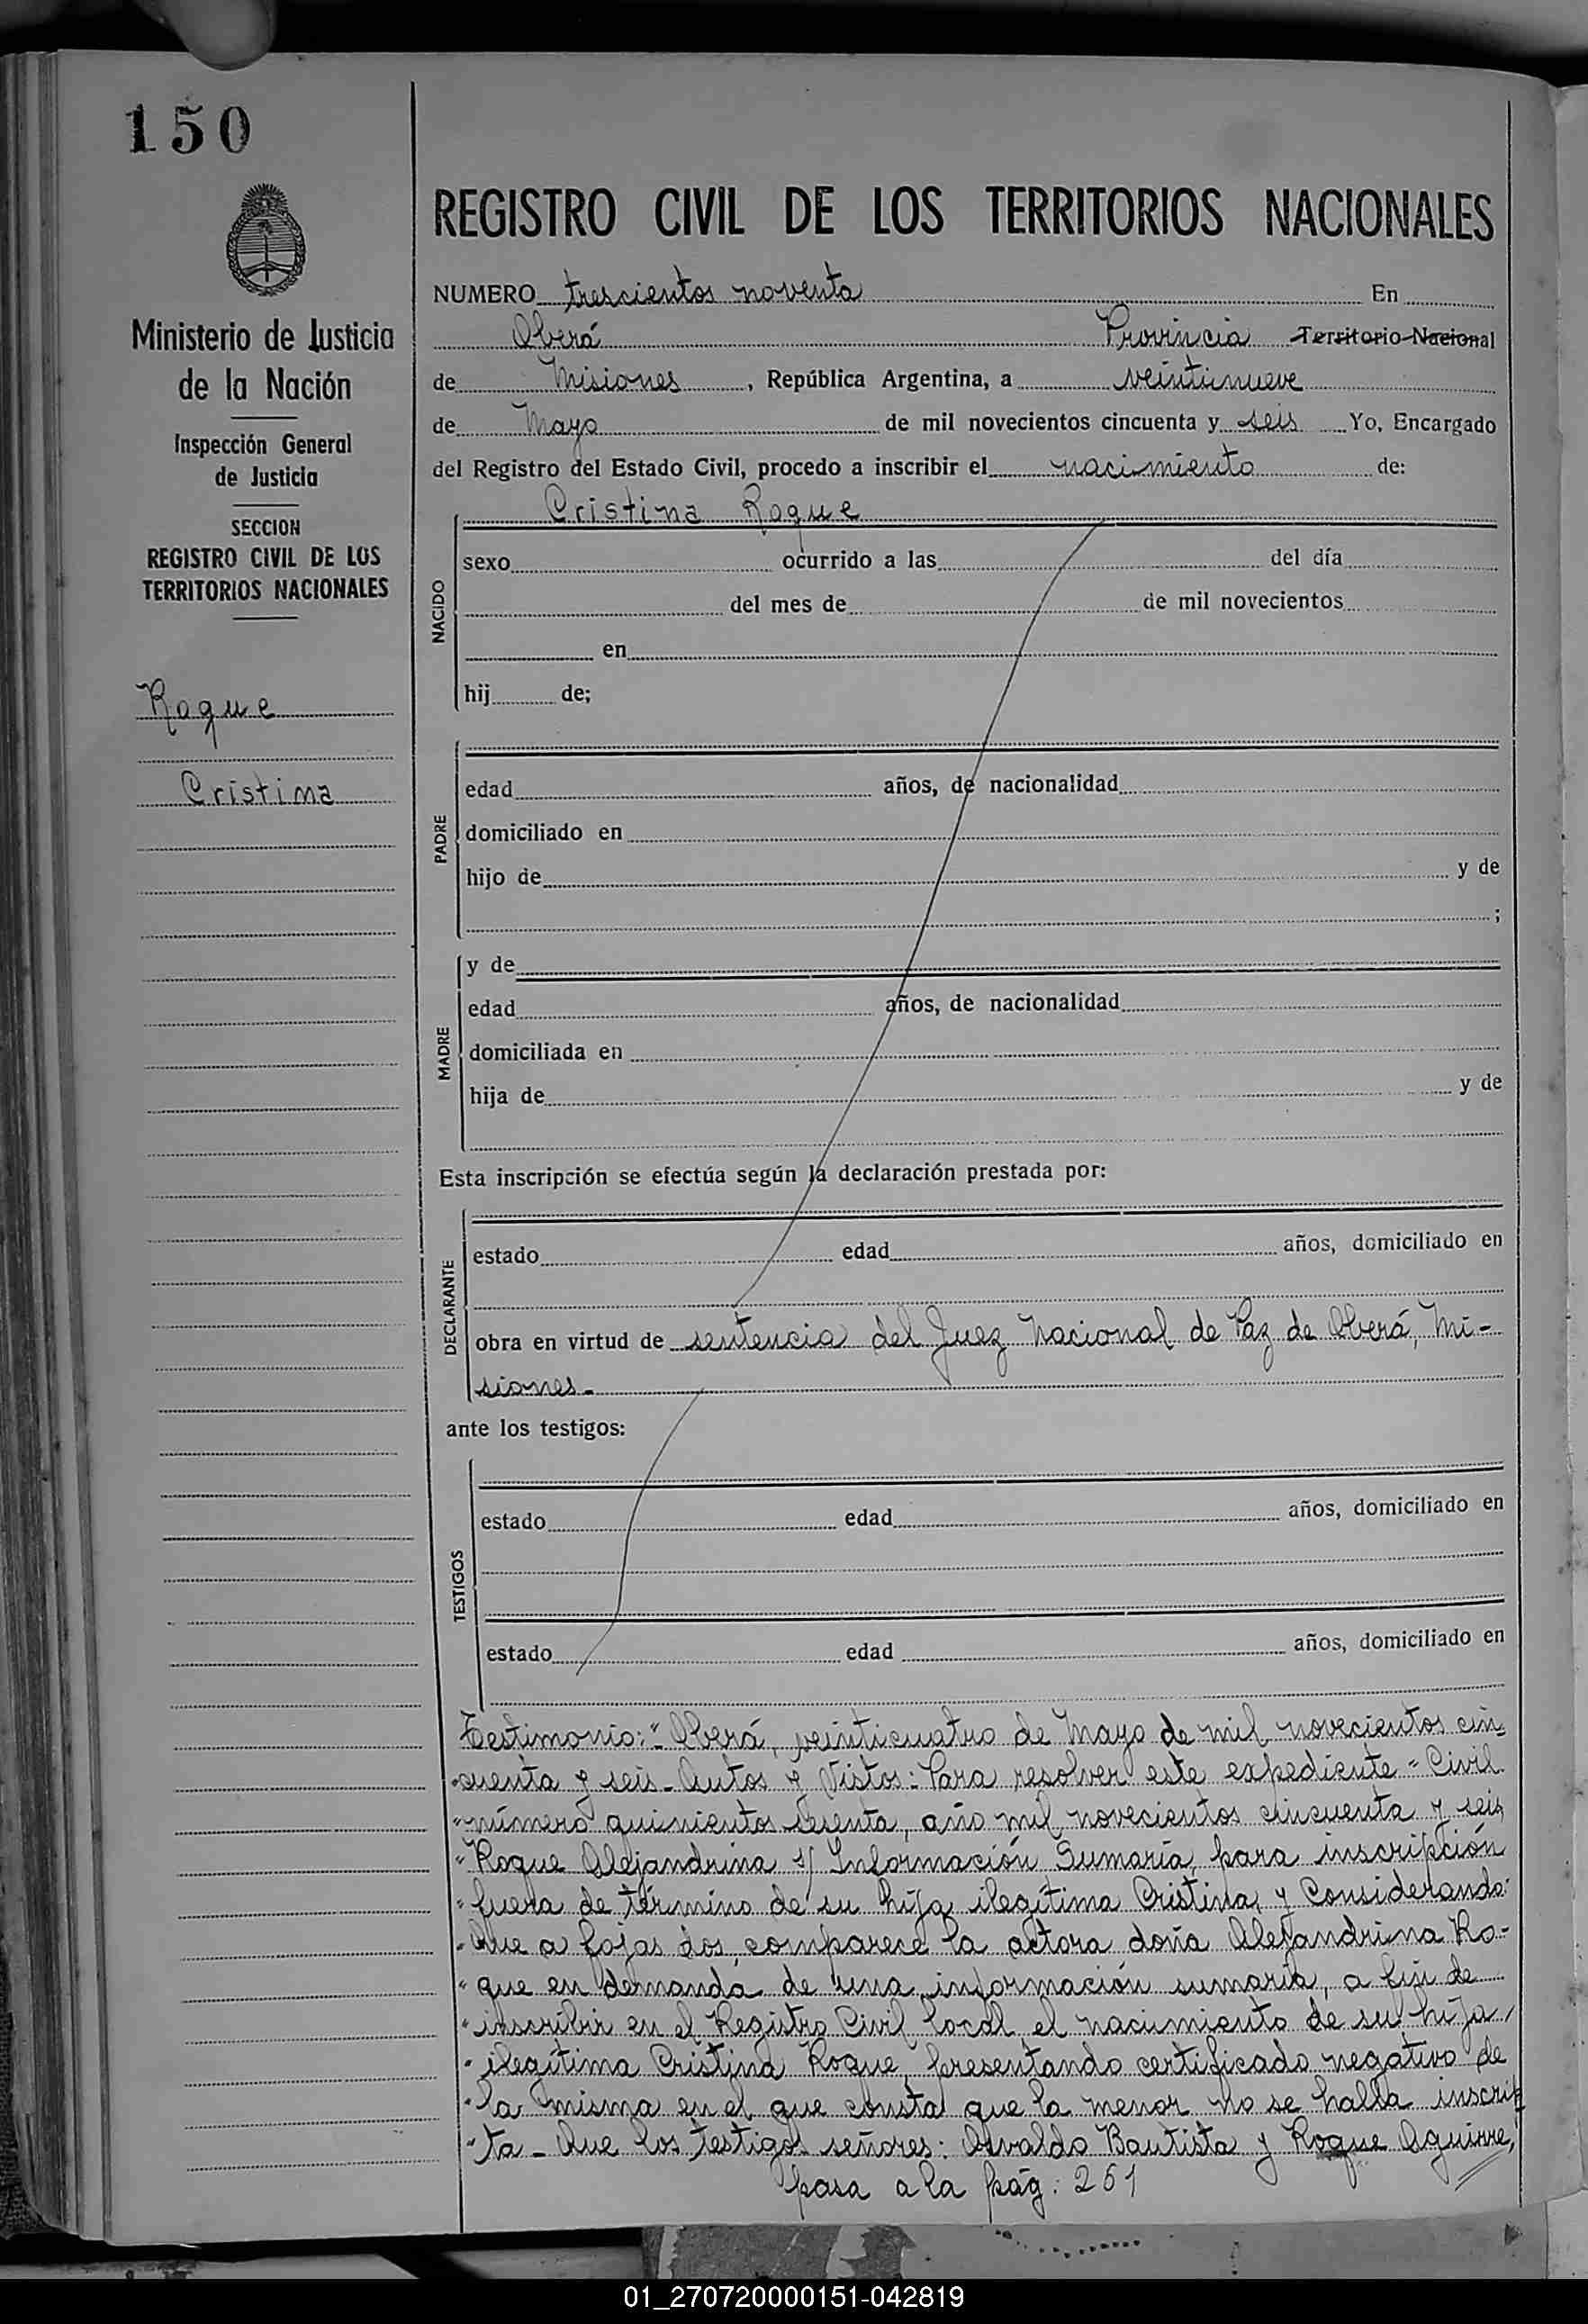 150
Ministerio de Justicia
de la Nación
Inspección General
de Justicia
SECCION
REGISTRO CIVIL DE LOS
TERRITORIOS NACIONALES
Roque
Cristina
REGISTRO CIVIL DE LOS TERRITORIOS NACIONALES
NUMERO trescientos noventa En
Oberá Provincia Territorio Nacional
de Misiones, República Argentina, a veintinueve
de Mayo de mil novecientos cincuenta y seis Yo, Encargado
del Registro del Estado Civil, procedo a inscribir el nacimiento de:
Cristina Roque
NACIDO
sexo ocurrido a las del día
del mes de de mil novecientos
en
hij de;
PADRE
edad años, de nacionalidad
domiciliado en
hijo de y de
;
MADRE
y de
edad años, de nacionalidad
domiciliada en
hija de y de
Esta inscripción se efectúa según la declaración prestada por:
DECLARANTE
estado edad años, domiciliado en
obra en virtud de sentencia del Juez Nacional de Paz de Oberá, Mi-
siones.-
ante los testigos:
TESTIGOS
estado edad años, domiciliado en
estado edad años, domiciliado en
Testimonio: "Oberá, veinticuatro de Mayo de mil novecientos cin-
"cuenta y seis.- Autos y Vistos: Para resolver este expediente = Civil
"número quinientos sesenta, año mil novecientos cincuenta y seis,
"Roque Alejandrina s/ Información Sumaria, para inscripción
"fuera de término de su hija ilegítima Cristina, y Considerando:
"Que a fojas dos, comparece la actora doña Alejandrina Ro-
"que en demanda de una información sumaria, a fin de
"inscribir en el Registro Civil local el nacimiento de su hija
"ilegítima Cristina Roque, presentando certificado negativo de
"la misma en el que consta que la menor no se halla inscrip
"ta - Que los testigos señores: Osvaldo Bautista y Roque Aguirre,
pasa a la pág: 251
01_270720000151-042819